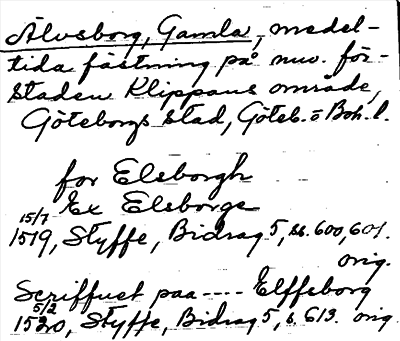 Älvsborg, Gamla, medel-
tida fästning på nuv. för-
staden Klippans område,
Göteborgs stad, Göteb. o Boh. l.
for Elsborgh
Ex Elsborge
15/7
1519, Styffe, Bidrag 5, ss. 600, 601.
orig.
Scriffuet paa ---- Elffsborg
5/2
1520, Styffe, Bidrag 5, s. 613. orig